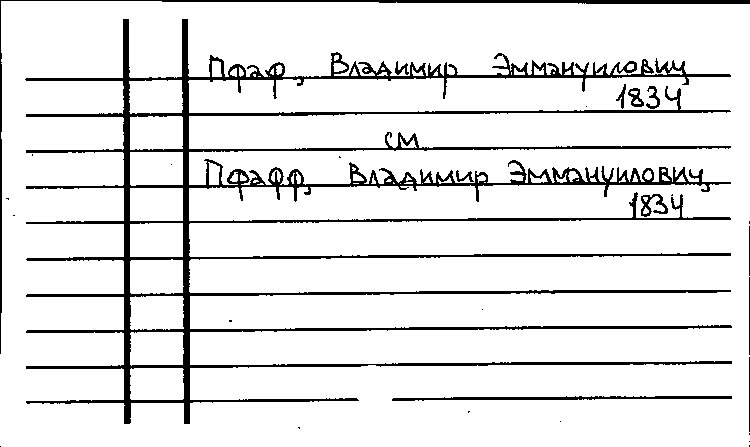 Пфаф, Владимир Эммануилович,
1834
см.
Пфафф, Владимир Эммануилович,
1834